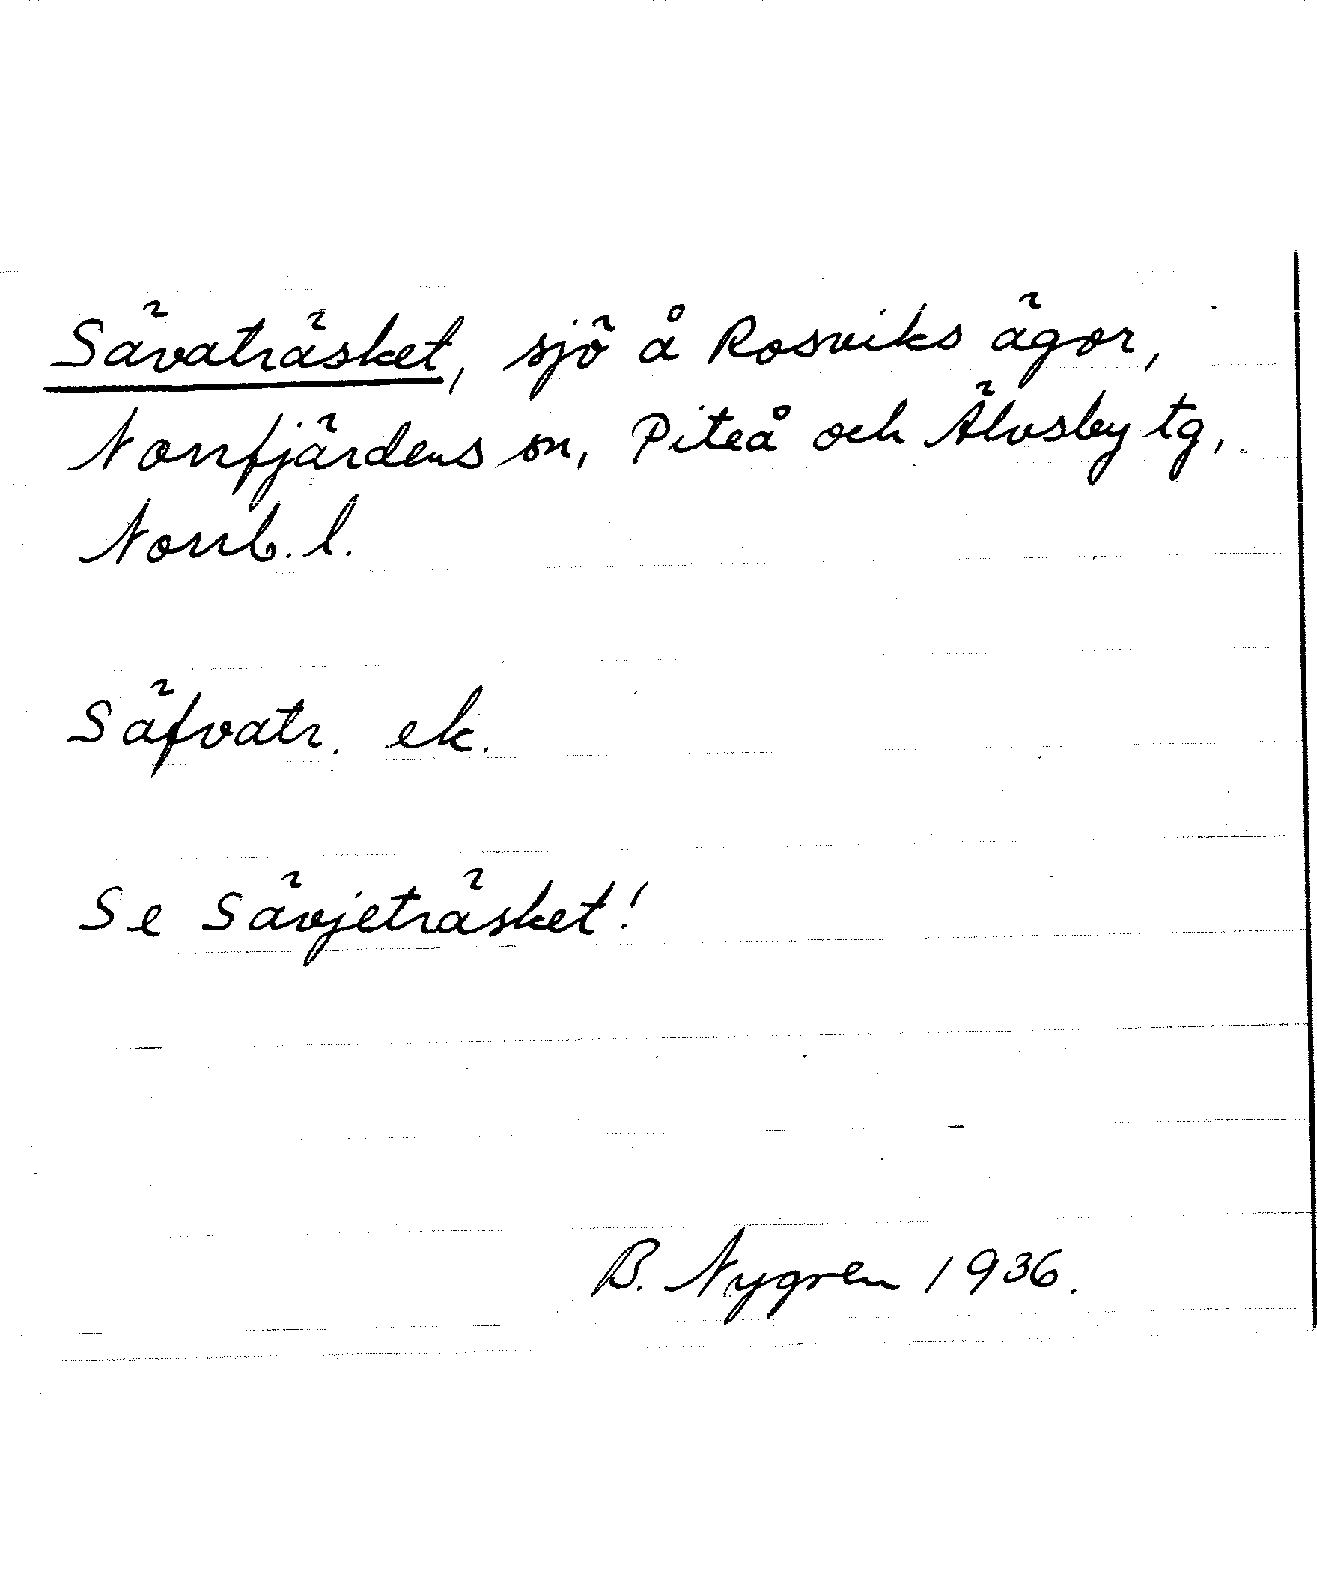 Sävaträsket, sjö å Rosviks ägor,
Norrfjärdens sn, Piteå och Älvsby tg,
Norrb. l.
Säfvatr. ek.
Se Sävjeträsket!
B. Nygren 1936.